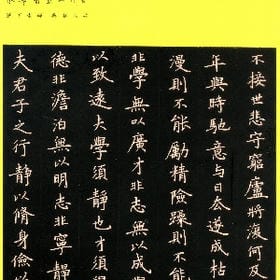 不接世悲守窮廬將復何及
年與時馳意與日去遂成枯
慢則不能勵精險躁則不能
非學無以廣才非志無以成學
以致遠夫學須靜也才須學
德非澹泊無以明志非寧靜
夫君子之行靜以脩身儉以